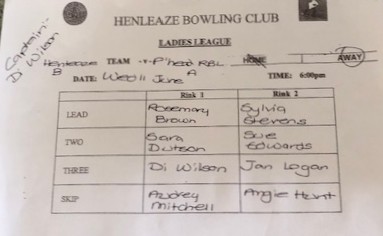 HENLEAZE BOWLING CLUB
LADIES LEAGUE
Captain:-
Di Wilson
Henleaze TEAM -v- P'head RBL HOME AWAY
B A
DATE: Wed 11 June TIME: 6:00pm
Rink 1 Rink 2
LEAD Rosemary Brown Sylvia Stevens
TWO Sara Dutson Sue Edwards
THREE Di Wilson Jan Logan
SKIP Audrey Mitchell Angie Hunt